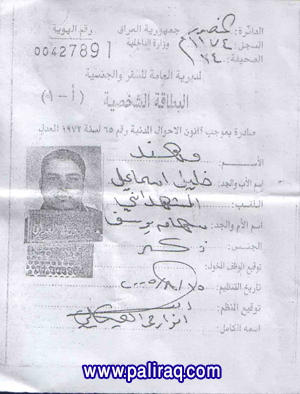 الدائرة: جمهورية العراق رقم الهوية
السجل: ١١٧٤ وزارة الداخلية
00427891
الصحيفة:
مديرية العامة للسفر والجنسية
البطاقة الشخصية (أ - )
صادرة بموجب قانون الاحوال المدنية رقم ٦٥ لسنة ١٩٧٢ المعدل
الأسم: مهند
اسم الأب والجد: خليل اسماعيل
اللقب: المشهداني
اسم الأم والجد: سهام يوسف
الجنس: ذكر
توقيع الموظف المخول:
تاريخ التنظيم:
توقيع المنظم:
اسمه الكامل:
www.paliraq.com